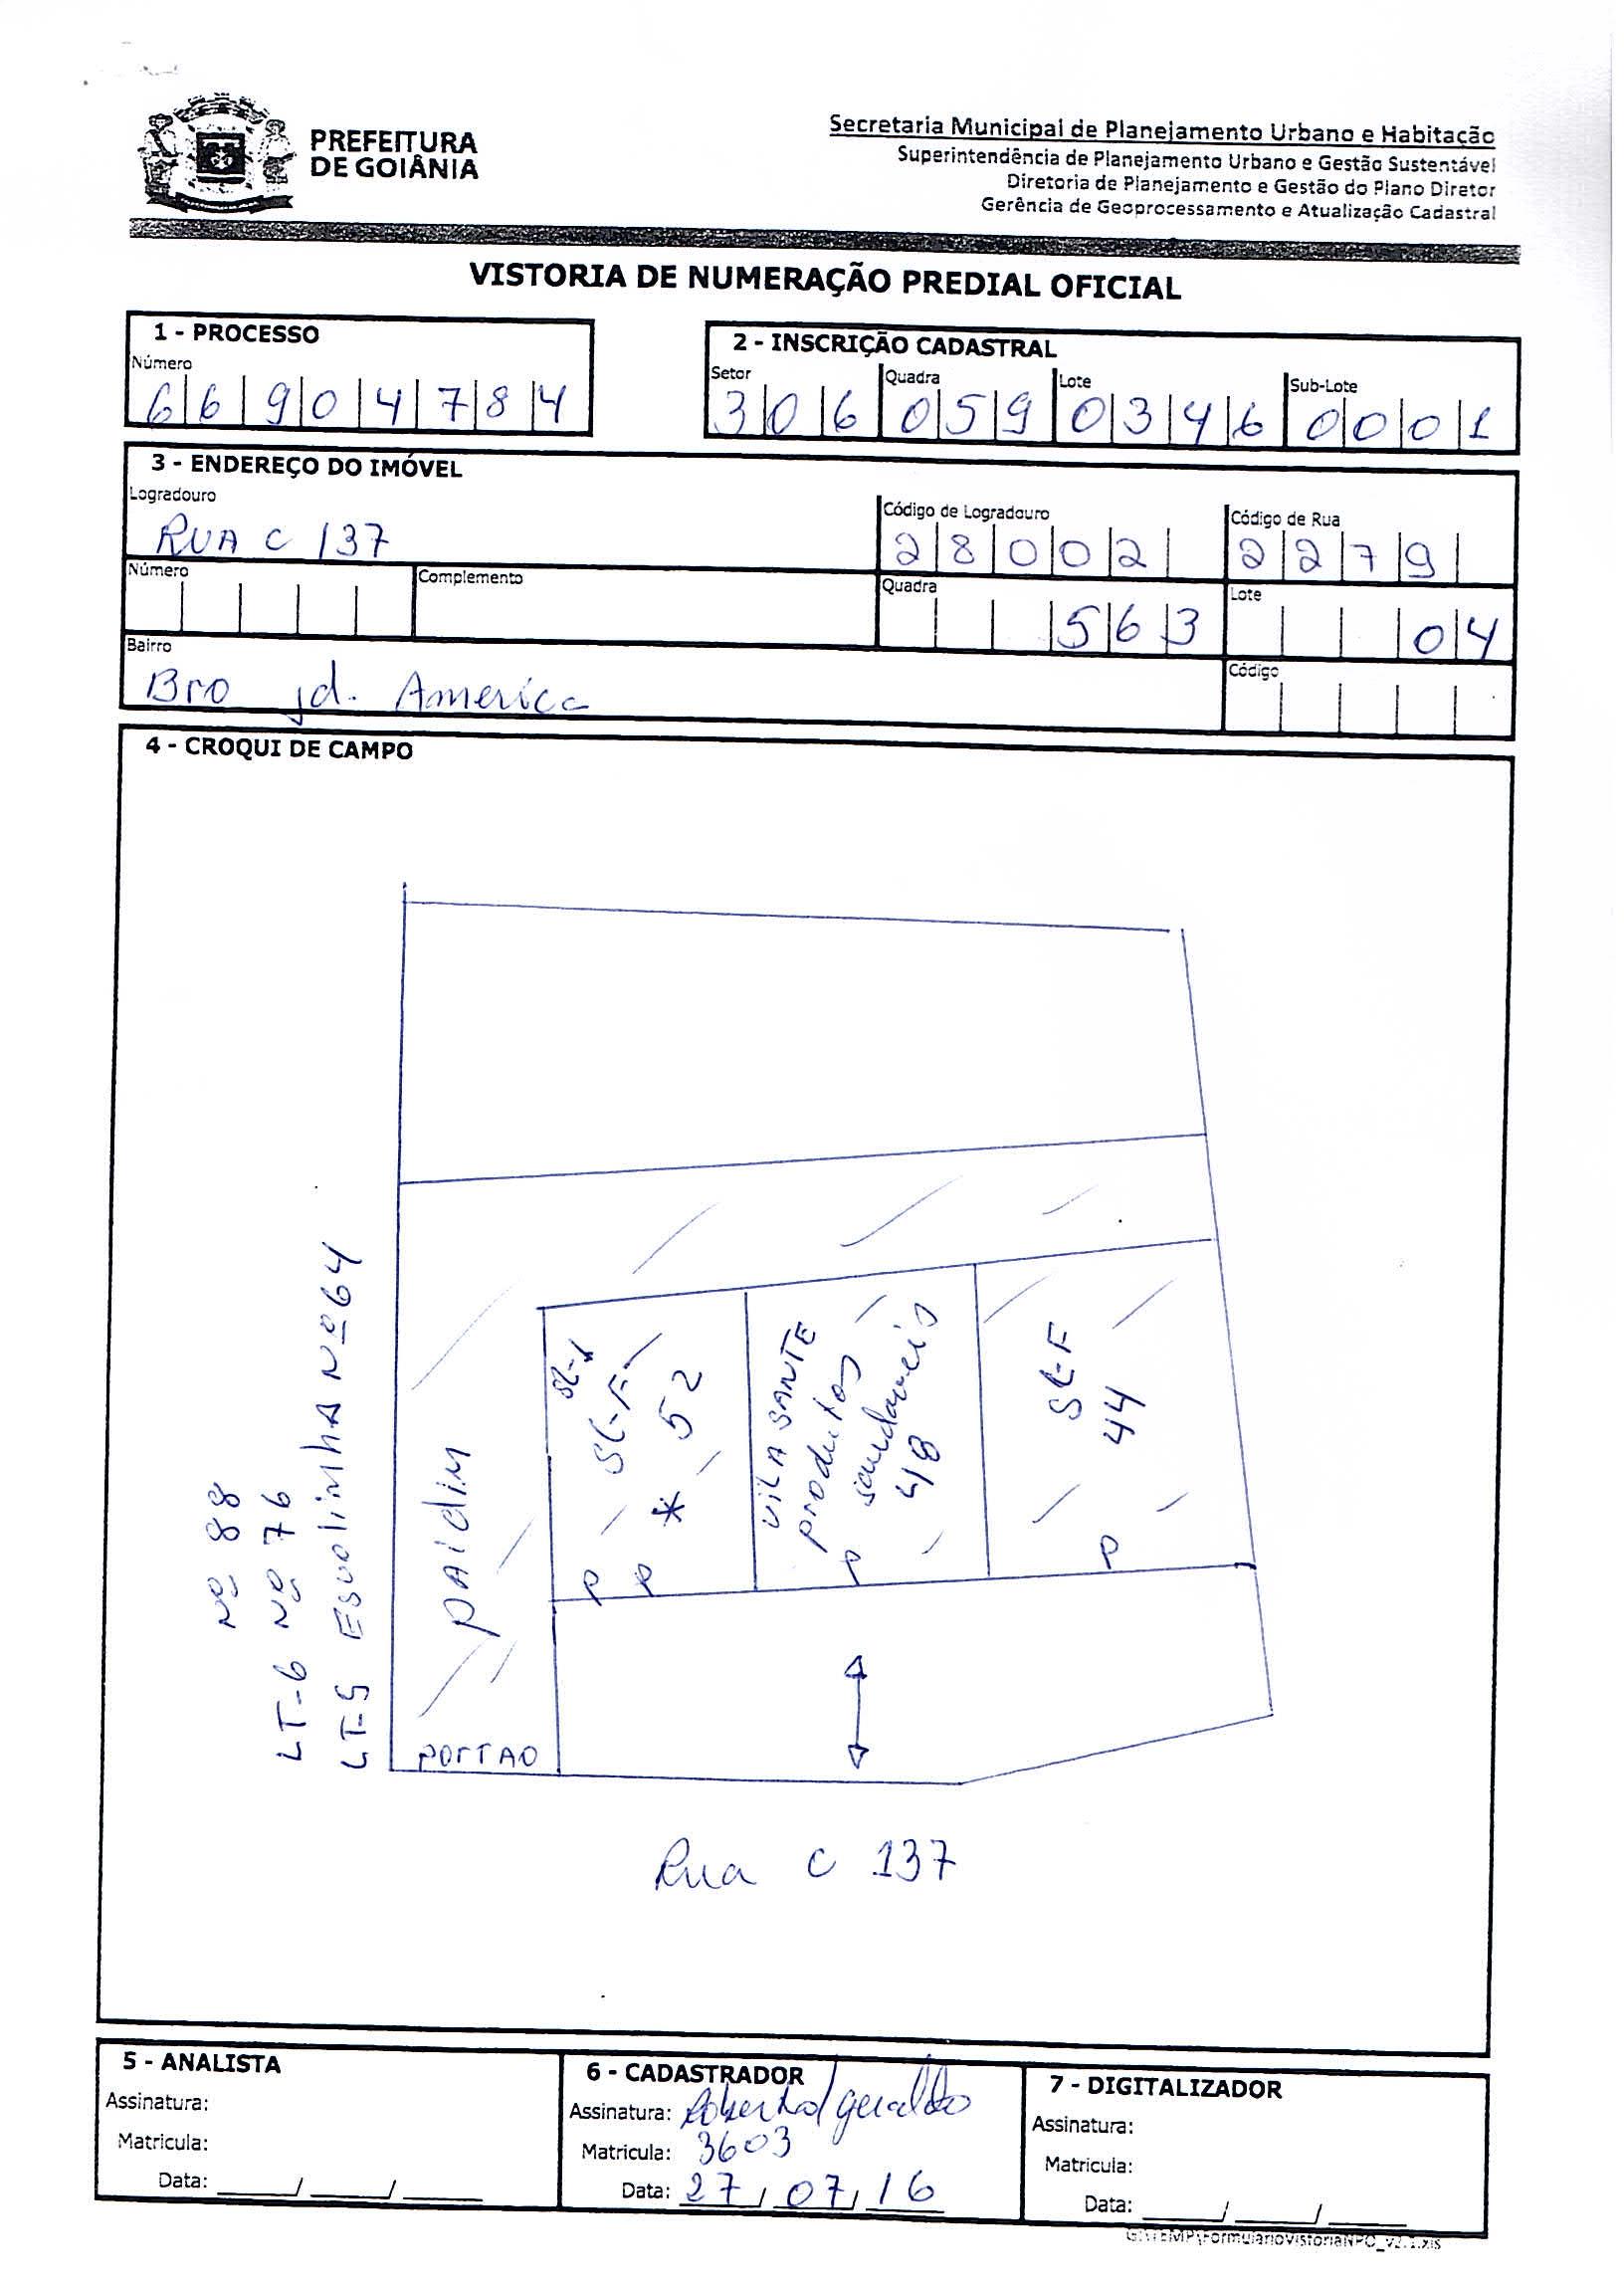 PREFEITURA
DE GOIÂNIA
Secretaria Municipal de Planejamento Urbano e Habitação
Superintendência de Planejamento Urbano e Gestão Sustentável
Diretoria de Planejamento e Gestão do Plano Diretor
Gerência de Geoprocessamento e Atualização Cadastral
VISTORIA DE NUMERAÇÃO PREDIAL OFICIAL
1 - PROCESSO
Número
6 6 9 0 4 7 8 4
2 - INSCRIÇÃO CADASTRAL
Setor Quadra Lote Sub-Lote
3 0 6 0 5 9 0 3 4 6 0 0 0 1
3 - ENDEREÇO DO IMÓVEL
Logradouro Código de Logradouro Código de Rua
RUA C 137 2 8 0 0 2 2 2 7 9
Número Complemento Quadra Lote
5 6 3 0 4
Bairro Código
Bro jd. America
4 - CROQUI DE CAMPO
Nº 88
LT-6 Nº 76
LT-5 Escolinha Nº 64
PORTAO
SL-1
SL-F
* 52
P P
VILA SANTE
produtos
saudaveis
48
P
SL-F
44
P
Rua C 137
5 - ANALISTA
Assinatura:
Matricula:
Data: ____/____/____
6 - CADASTRADOR
Assinatura: Roberto/Geraldo
Matricula: 3603
Data: 27/07/16
7 - DIGITALIZADOR
Assinatura:
Matricula:
Data: ____/____/____
G:\TEMP\FormularioVistoriaNPO_v2.1.xls